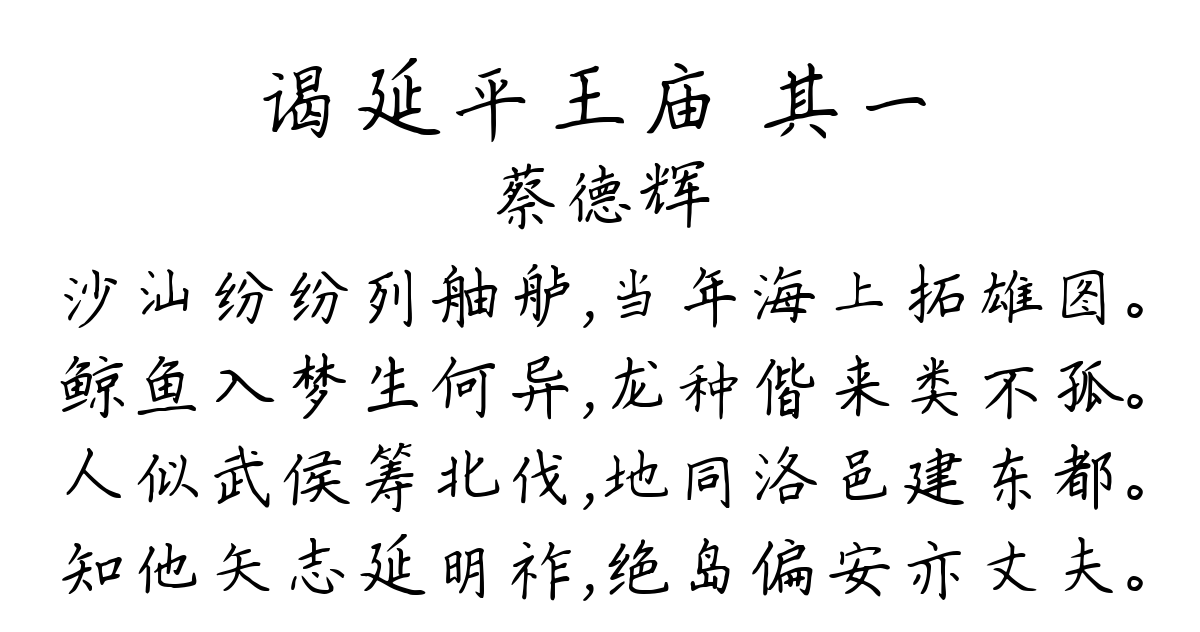 谒延平王庙 其一
蔡德辉
沙汕纷纷列舳舻,当年海上拓雄图。
鲸鱼入梦生何异,龙种偕来类不孤。
人似武侯筹北伐,地同洛邑建东都。
知他矢志延明祚,绝岛偏安亦丈夫。